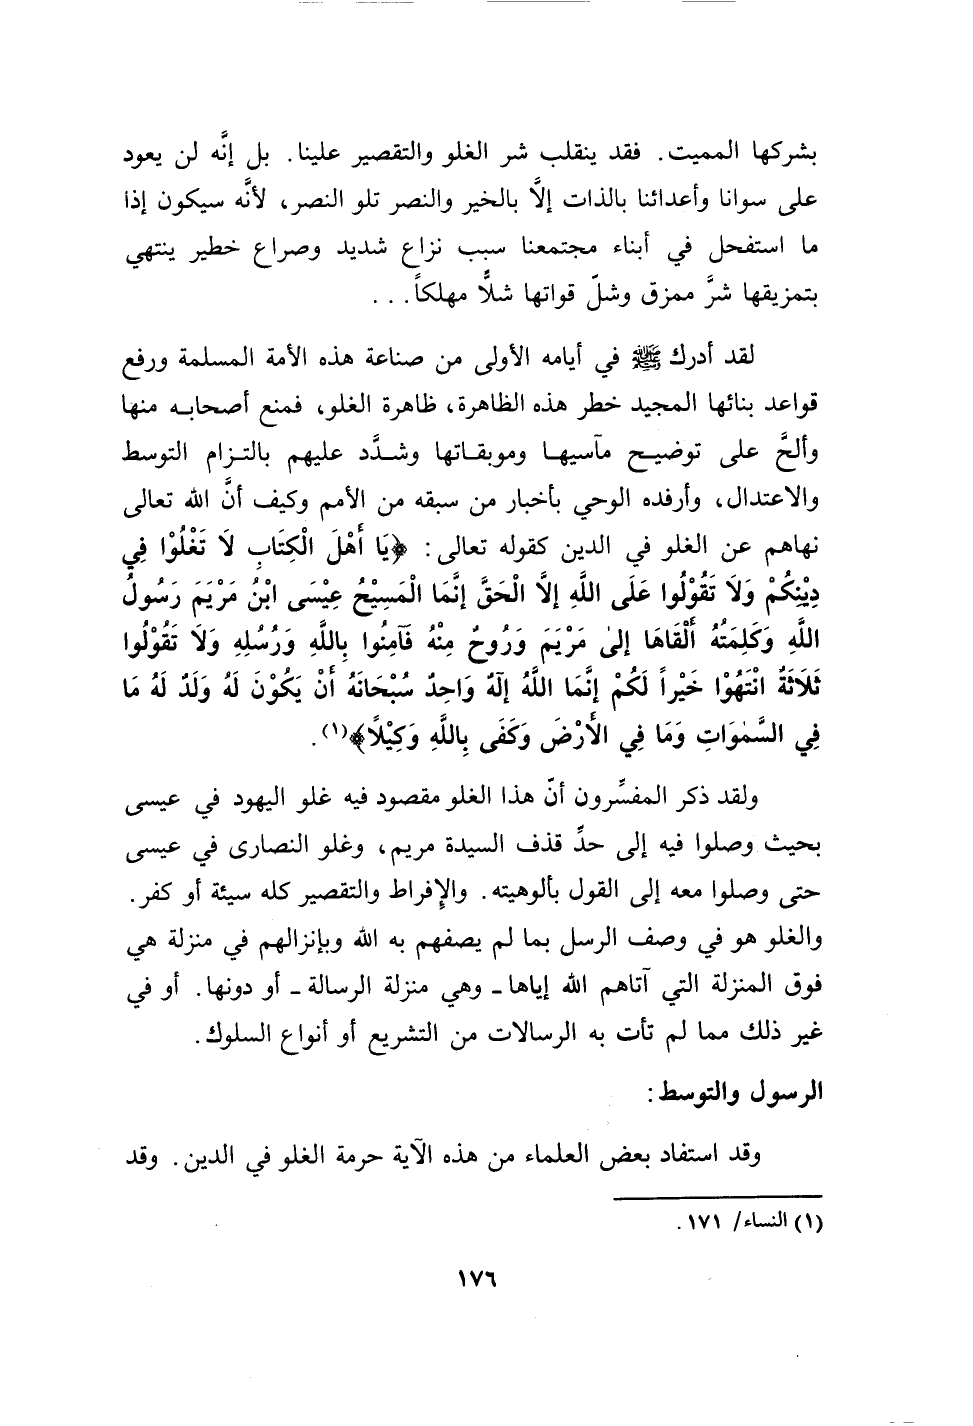 بشركها المميت. فقد ينقلب شر الغلو والتقصير علينا. بل إنَّه لن يعود
على سوانا وأعدائنا بالذات إلَّا بالخير والنصر تلو النصر، لأنَّه سيكون إذا
ما استفحل في أبناء مجتمعنا سبب نزاع شديد وصراع خطير ينتهي
بتمزيقها شرَّ ممزق وشلّ قواتها شلًّا مهلكاً...
لقد أدرك ﷺ في أيامه الأولى من صناعة هذه الأمة المسلمة ورفع
قواعد بنائها المجيد خطر هذه الظاهرة، ظاهرة الغلو، فمنع أصحابه منها
وألحَّ على توضيح مآسيها وموبقاتها وشدَّد عليهم بالتزام التوسط
والاعتدال، وأرفده الوحي بأخبار من سبقه من الأمم وكيف أنَّ الله تعالى
نهاهم عن الغلو في الدين كقوله تعالى: ﴿يَا أَهْلَ الْكِتَابِ لاَ تَغْلُوْا فِي
دِيْنِكُمْ وَلاَ تَقُوْلُوا عَلَى اللَّهِ إلاَّ الْحَقَّ إنَّمَا الْمَسِيْحُ عِيْسَى ابْنُ مَرْيَمَ رَسُولُ
اللَّهِ وَكَلِمَتُهُ أَلْقَاهَا إلىٰ مَرْيَمَ وَرُوحٌ مِنْهُ فَآمِنُوا بِاللَّهِ وَرُسُلِهِ وَلاَ تَقُوْلُوا
ثَلَاثَةٌ انْتَهُوْا خَيْراً لَكُمْ إنَّمَا اللَّهُ إلَهٌ وَاحِدٌ سُبْحَانَهُ أَنْ يَكُوْنَ لَهُ وَلَدٌ لَهُ مَا
فِي السَّمٰوَاتِ وَمَا فِي الأَرْضَ وَكَفَى بِاللَّهِ وَكِيْلًا﴾(١).
ولقد ذكر المفسِّرون أنّ هذا الغلو مقصود فيه غلو اليهود في عيسى
بحيث وصلوا فيه إلى حدِّ قذف السيدة مريم، وغلو النصارى في عيسى
حتى وصلوا معه إلى القول بألوهيته. والإفراط والتقصير كله سيئة أو كفر.
والغلو هو في وصف الرسل بما لم يصفهم به الله وبإنزالهم في منزلة هي
فوق المنزلة التي آتاهم الله إياها ـ وهي منزلة الرسالة ـ أو دونها. أو في
غير ذلك مما لم تأت به الرسالات من التشريع أو أنواع السلوك.
الرسول والتوسط:
وقد استفاد بعض العلماء من هذه الآية حرمة الغلو في الدين. وقد
(١) النساء/ ١٧١.
١٧٦